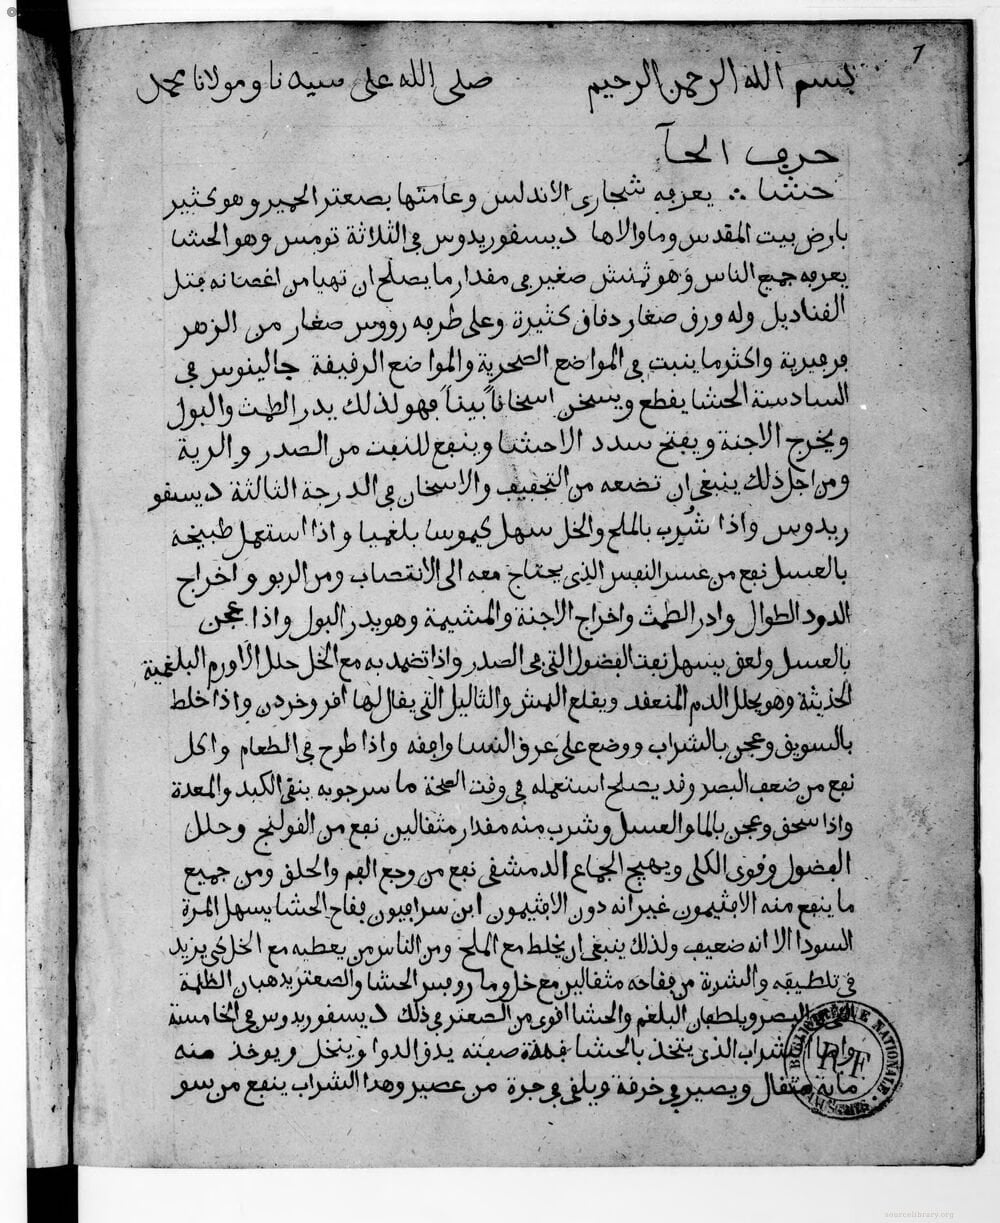 7
بسم الله الرحمن الرحيم صلى الله على سيدنا ومولانا محمد
حرف الحآ
حشا ∴ يعرفه شجارى الاندلس وعامتها بصعتر الحمير وهو كثير
بارض بيت المقدس وما والاها ديسفوريدوس في الثلاثة تومس وهو الحشا
يعرفه جميع الناس وهو تمنش صغير في مقدار ما يصلح ان تهيا من اغصانه فتل
القناديل وله ورق صغار دفاق كثيرة وعلى طرفه رووس صغار من الزهر
فرفيرية واكثر ما ينبت في المواضع الصخرية والمواضع الرقيقة جالينوس في
السادسة الحشا يقطع ويسخن اسخاناً بيناً فهو لذلك يدر الطمث والبول
ويخرج الاجنة ويفتح سدد الاحشا وينفع للنفث من الصدر والرية
ومن اجل ذلك ينبغي ان تضعه من التجفيف والاسخان في الدرجة الثالثة ديسفو
ريدوس واذا شُرب بالملح والخل سهل كيموسا بلغميا واذا استعمل طبيخه
بالعسل نفع من عسر النفس الذي يحتاج معه الى الانتصاب ومن الربو واخراج
الدود الطوال وادر الطمث واخراج الاجنة والمشيمة وهو يدر البول واذا عجن
بالعسل ولعق يسهل نفث الفضول التي في الصدر واذا تضمد به مع الخل حلل الاورم البلغمية
الحديثة وهو يحلل الدم المنعقد ويقلع النمش والثاليل التي يقال لها افروخردن واذا خلط
بالسويق وعجن بالشراب ووضع على عرق النسا وافقه واذا طرح في الطعام واكل
نفع من ضعف البصر وقد يصلح استعمله في وقت الصحة ماسرجويه ينقي الكبد والمعدة
واذا سحق وعجن بالما والعسل وشرب منه مقدار مثقالين نفع من القولنج وحلل
الفضول وقوى الكلى ويهيج الجماع الدمشقي نفع من وجع الفم والحلق ومن جميع
ما ينفع منه الافثيمون غير انه دون الافثيمون ابن سرافيون فقاح الحشا يسهل المرة
السودا الا انه ضعيف ولذلك ينبغي ان يخلط مع الملح ومن الناس من يعطيه مع الخل كي يزيد
في تلطيفه والشربة من فقاحه مثقالين مع خل وما روفس الحشا والصعتر يذهبان الظلمة
البصر ويلطفان البلغم والحشا اقوى من الصعتر في ذلك ديسفوريدوس في الخامسة
واما الشراب الذي يتخذ بالحشا فهذه صفته يدق الدوا وينخل ويوخذ منه
ماية مثقال ويصير في خرقة ويلقى في جرة من عصير وهذا الشراب ينفع من سو
BIBLIOTHÈQUE NATIONALE
RF
sourcelibrary.org